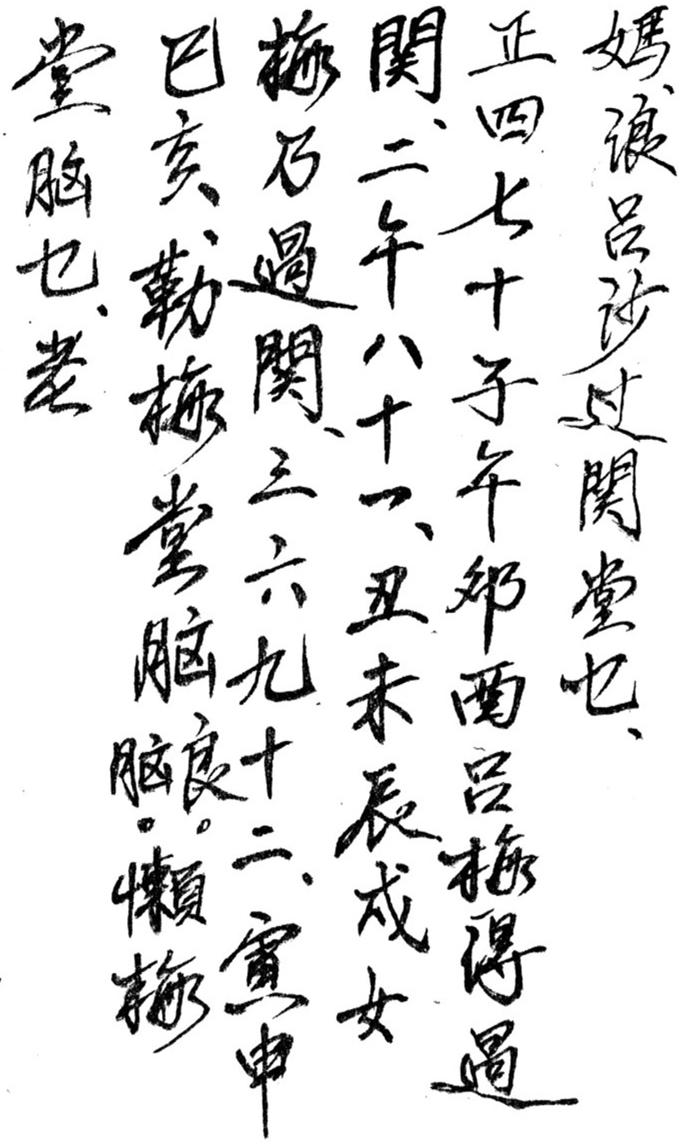 媽、浪呂沙过関堂乜、
正四七十子午卯酉呂梅得過
関、二午八十一、丑未辰戌女
梅乃過関、三六九十二、寅申
巳亥、勒梅堂脑良。脑。懒梅
堂脑乜、老